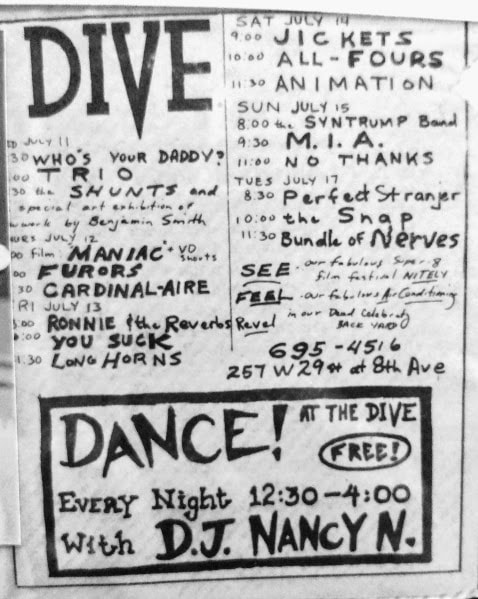 DIVE
D JULY 11
30 WHO'S YOUR DADDY?
00 TRIO
30 the SHUNTS and
special art exhibition of
work by Benjamin Smith
URS JULY 12
00 film "MANIAC" + VD Shorts
00 FURORS
30 CARDINAL-AIRE
RI JULY 13
:00 RONNIE & the Reverbs
0:00 YOU SUCK
1:30 LONGHORNS
SAT JULY 14
9:00 JICKETS
10:00 ALL-FOURS
11:30 ANIMATION
SUN JULY 15
8:00 the SYNTRUMP Band
9:30 M.I.A.
11:00 NO THANKS
TUES JULY 17
8:30 Perfect Stranjer
10:00 the Snap
11:30 Bundle of Nerves
SEE - our fabulous Super-8
film festival NITELY
FEEL - our fabulous Air Conditioning
Revel in our Dead Celebrity
BACK YARD
695-4516
257 W 29st at 8th Ave
DANCE! AT THE DIVE
FREE!
EVERY Night 12:30-4:00
With D.J. NANCY N.